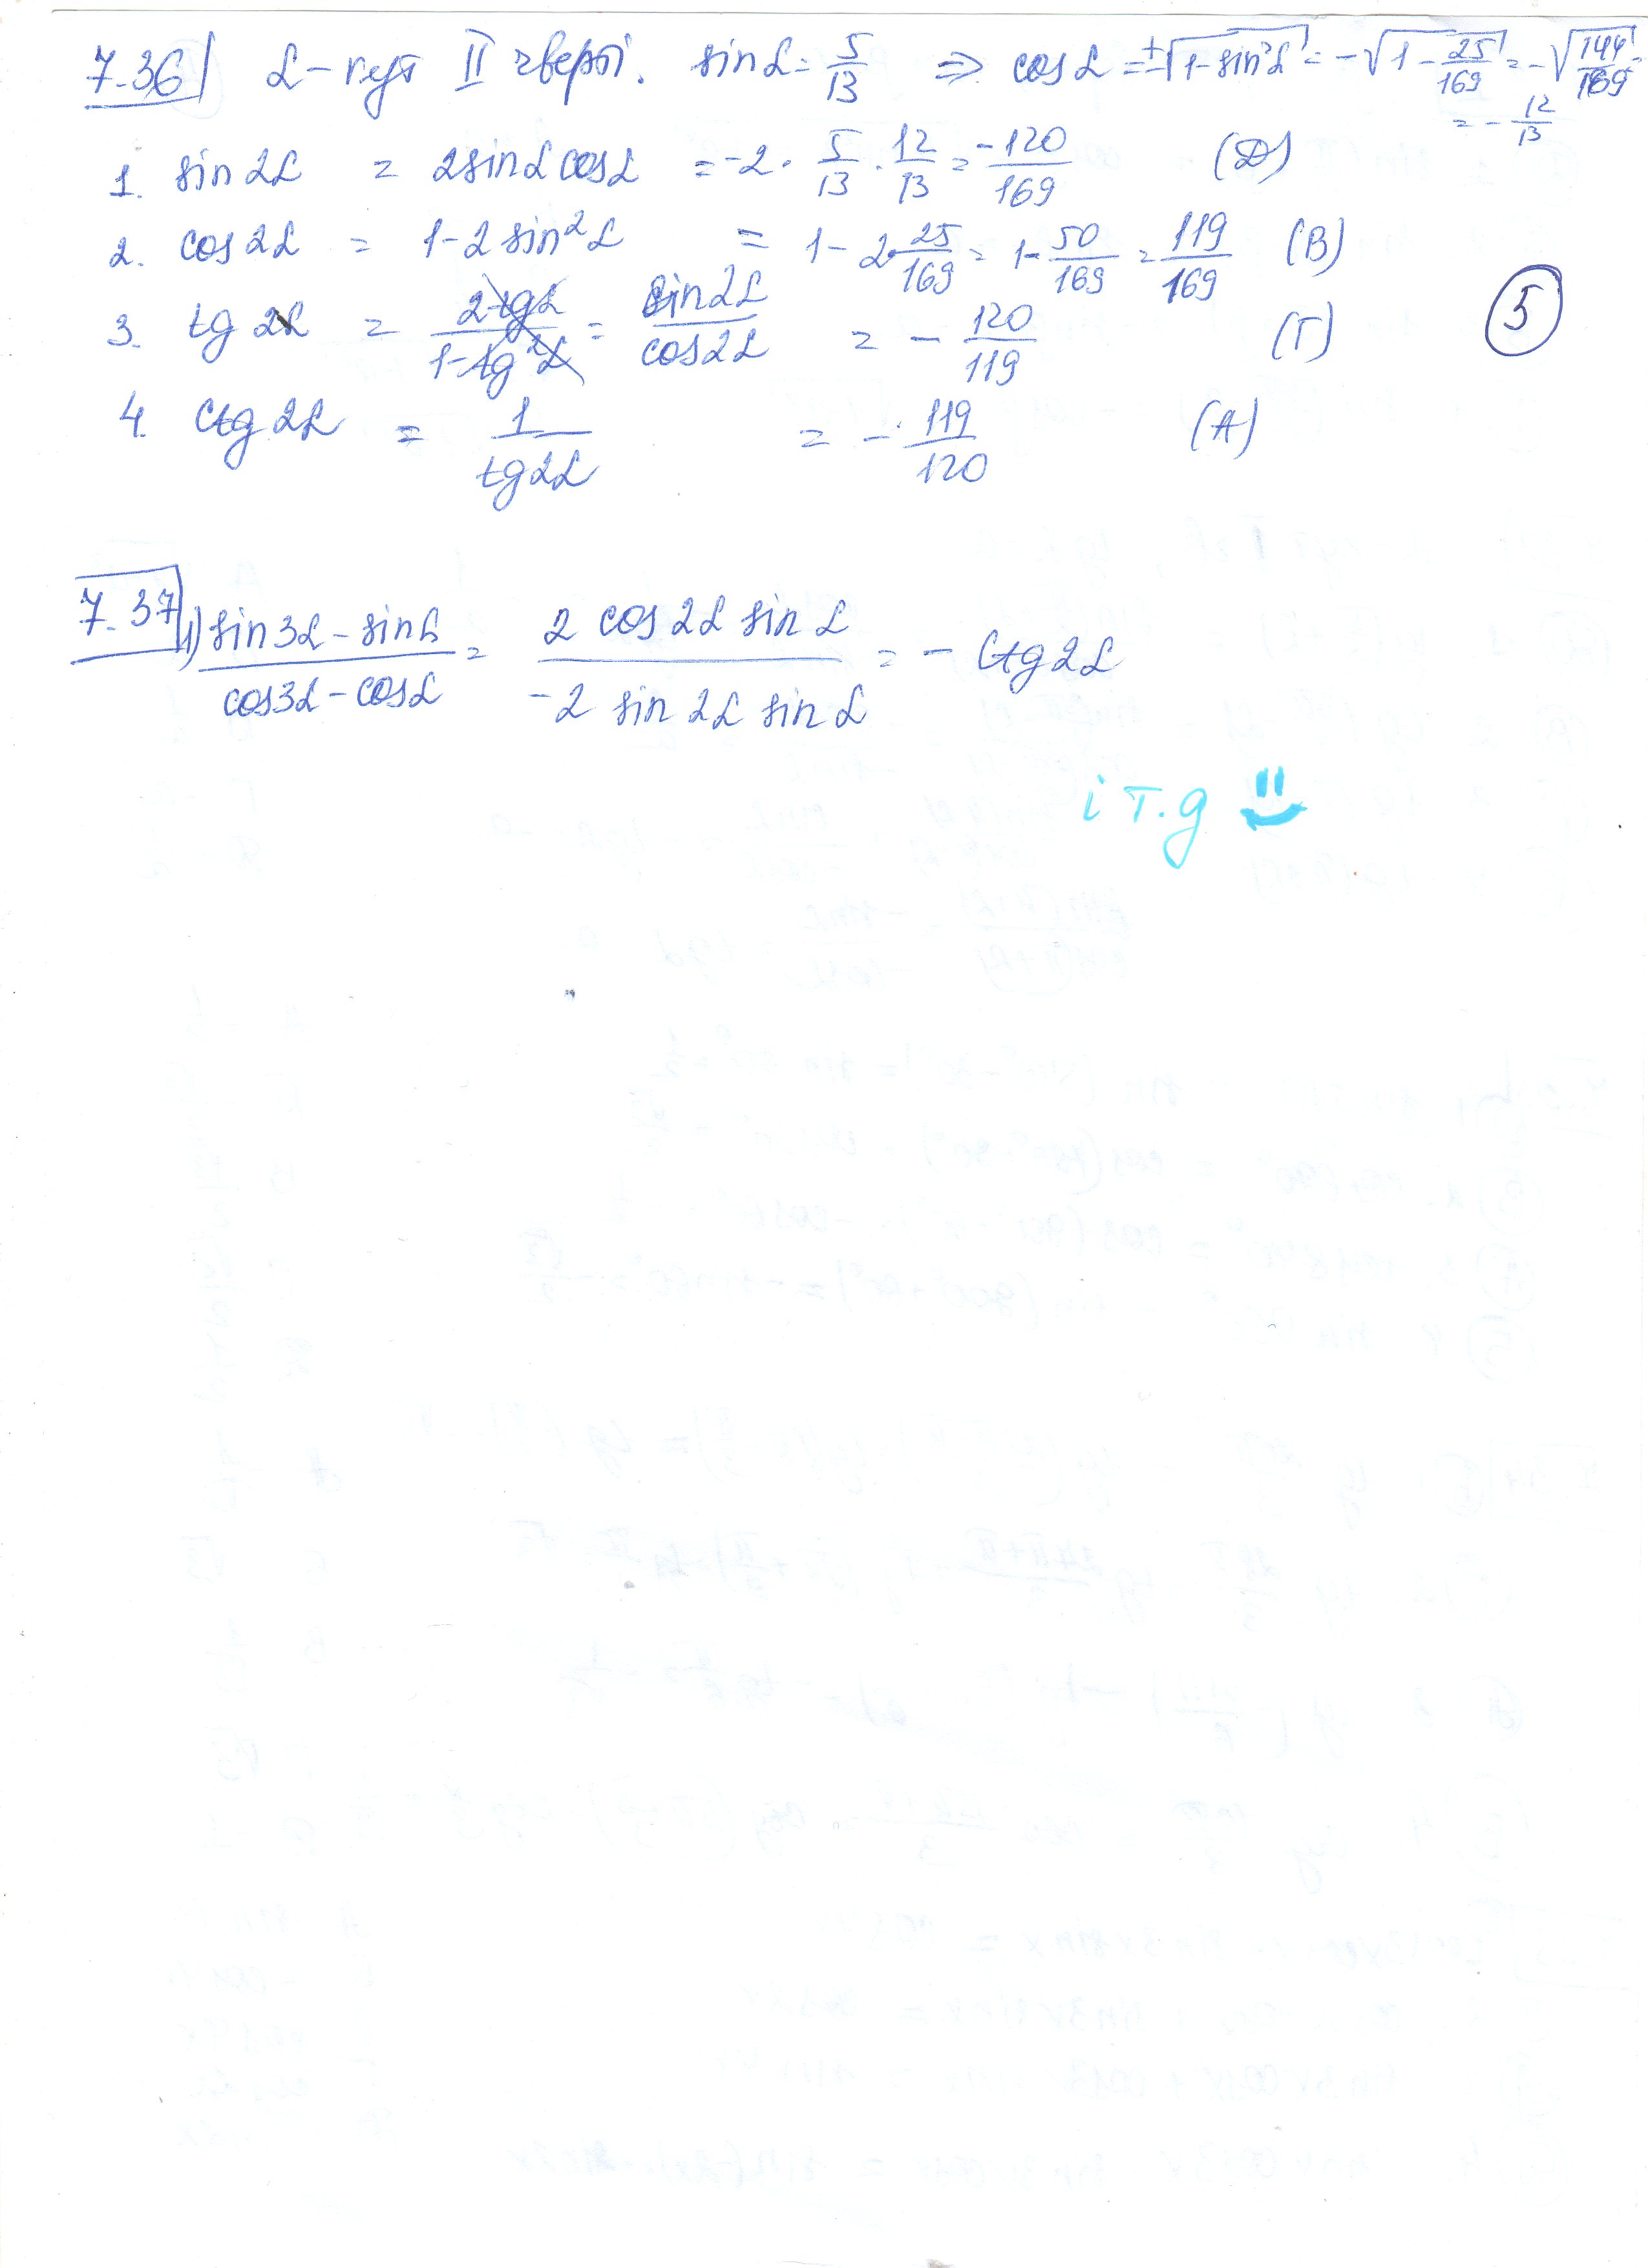 7.36 α-кут II чверті. sin α = 5/13 ⇒ cos α = ±√(1-sin²α) = -√(1-25/169) = -√(144/169) =
= -12/13
1. sin 2α = 2 sin α cos α = -2 · 5/13 · 12/13 = -120/169 (Д)
2. cos 2α = 1-2 sin²α = 1-2·25/169 = 1-50/169 = 119/169 (В)
3. tg 2α = 2 tg α/(1-tg²α) = sin 2α/cos 2α = -120/119 (Г)
5
4. ctg 2α = 1/tg 2α = -119/120 (А)
7.37 1) (sin 3α - sin α)/(cos 3α - cos α) = (2 cos 2α sin α)/(-2 sin 2α sin α) = -ctg 2α
і т.д